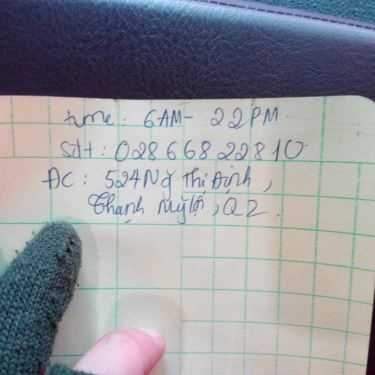 time: 6AM- 22PM
Sđt: 02866822810
ĐC: 524 Ng Thị Định,
Thạnh Mỹ Lợi, Q2.